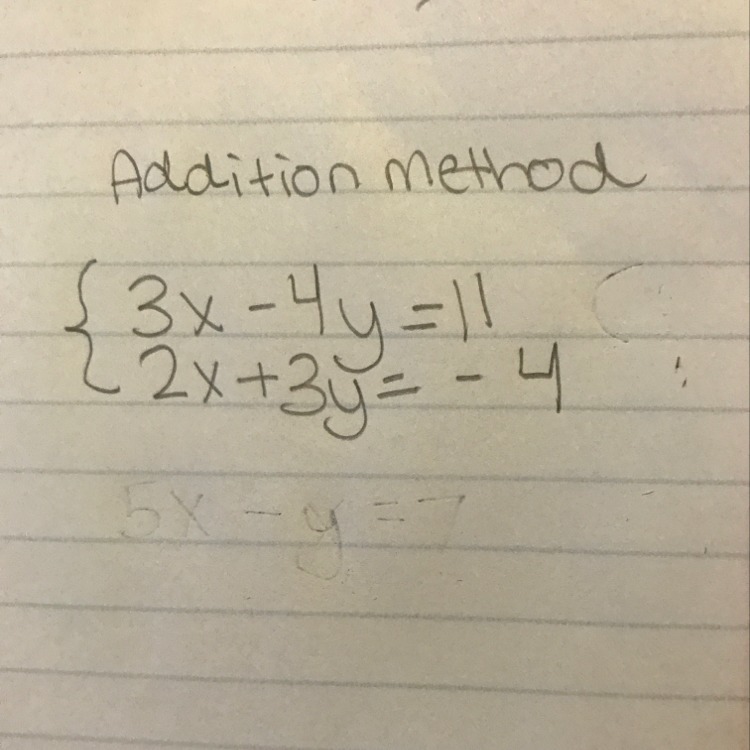 Addition method
3x - 4y = 11
2x + 3y = - 4
5x - y = 7